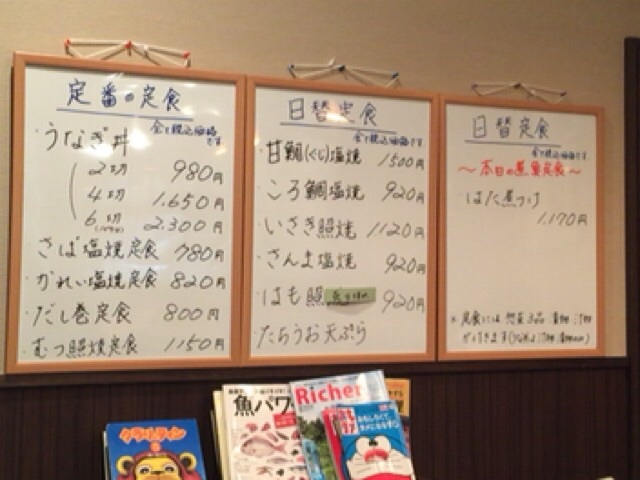 定番の定食
全て税込価格です
うなぎ丼
2切 980円
4切 1.650円
6切 2.300円
さば塩焼定食 780円
かれい塩焼定食 820円
だし巻定食 800円
むつ照焼定食 1150円
日替定食
全て税込価格です
甘鯛(ぐじ)塩焼 1500円
ころ鯛塩焼 920円
いさき照焼 1120円
さんま塩焼 920円
はも照 920円
たちうお天ぷら
日替定食
全て税込価格です
～本日の煮魚定食～
はた煮つけ
1.170円
※定食には惣菜3品
が付きます
グラ・ル・ティン
魚パワ
Richer